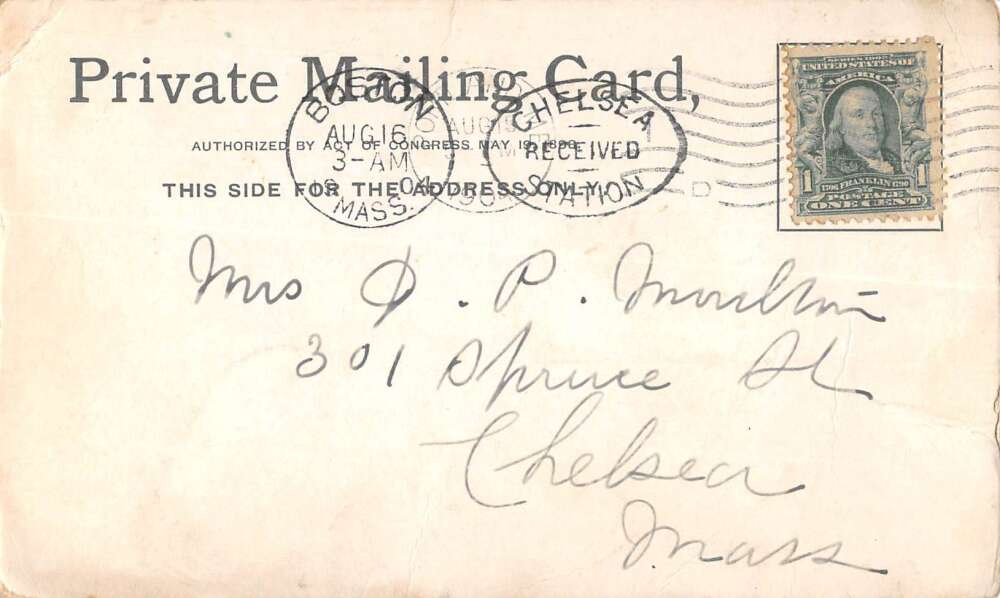 Private Mailing Card,
AUTHORIZED BY ACT OF CONGRESS MAY 19, 1898
THIS SIDE FOR THE ADDRESS ONLY
BOSTON
AUG 16
3-AM
04
MASS.
AUG 15
190
CHELSEA
RECEIVED
STATION
D
UNITED STATES OF
AMERICA
1 1
1706 FRANKLIN 1790
POSTAGE
ONE CENT
Mrs D. P. Moulton
301 Spruce St
Chelsea
Mass